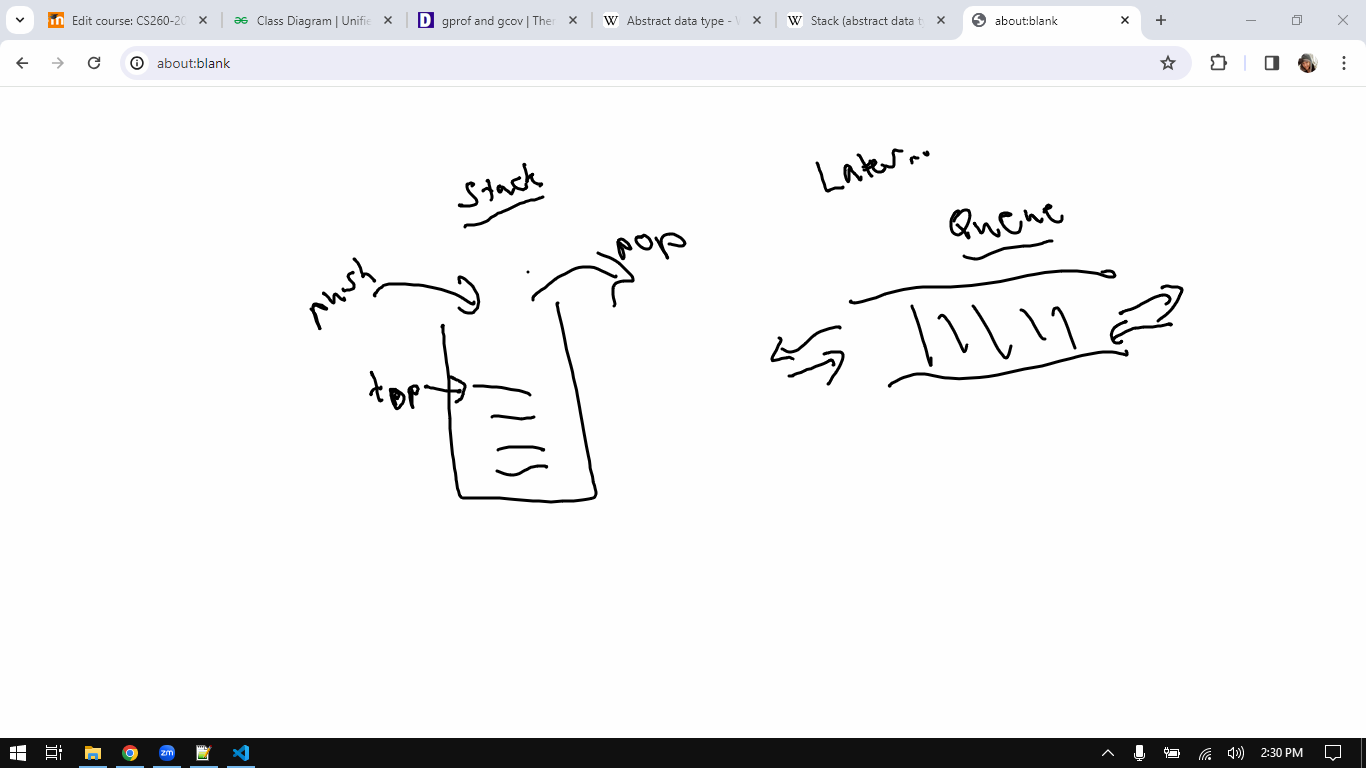 Edit course: CS260-20
Class Diagram | Unifie
gprof and gcov | Ther
Abstract data type - W
Stack (abstract data ty
about:blank
about:blank
Later...
Stack
Queue
push
pop
top
zm
2:30 PM